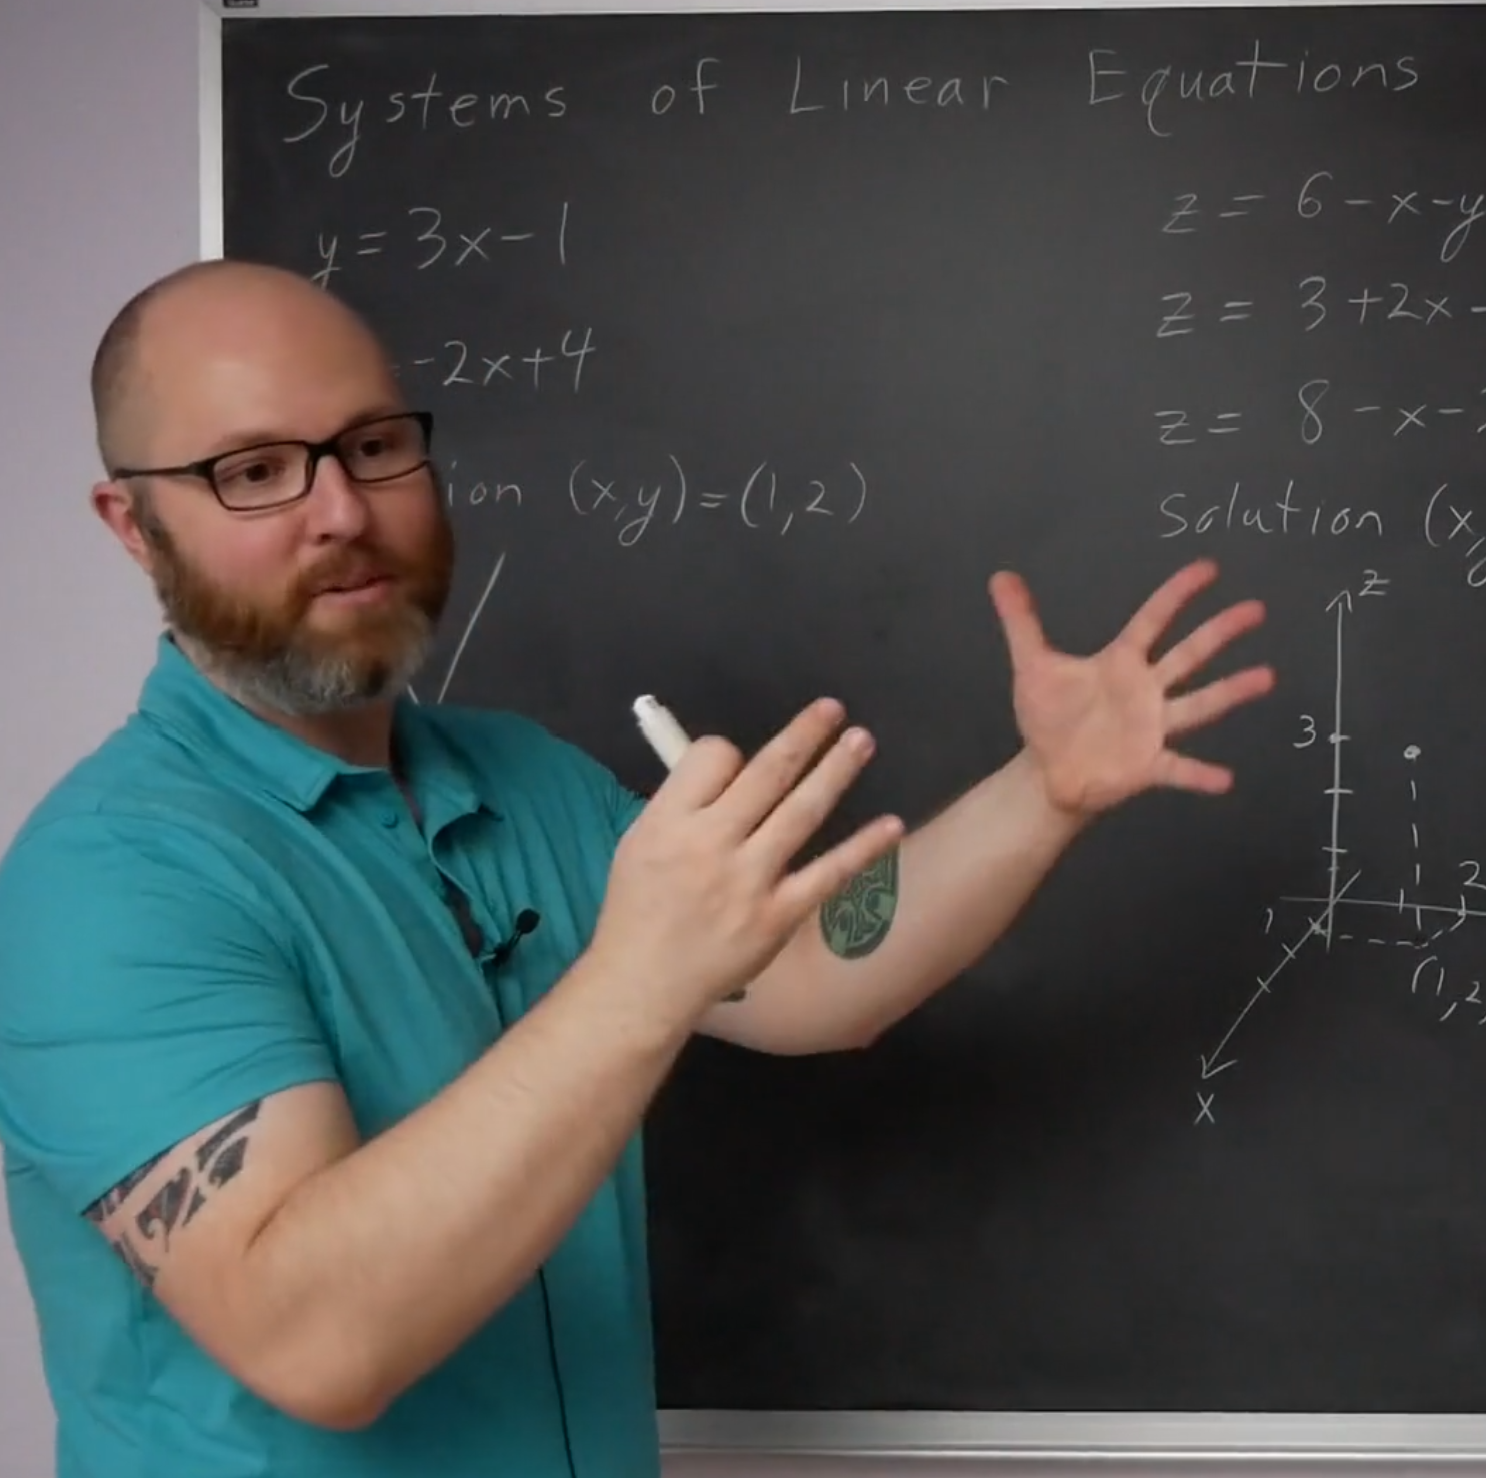 Systems of Linear Equations
y = 3x - 1
-2x + 4
ion (x,y) = (1,2)
z = 6 - x - y
z = 3 + 2x -
z = 8 - x -
Solution (x,
z
3
2
1
(1,2,
x